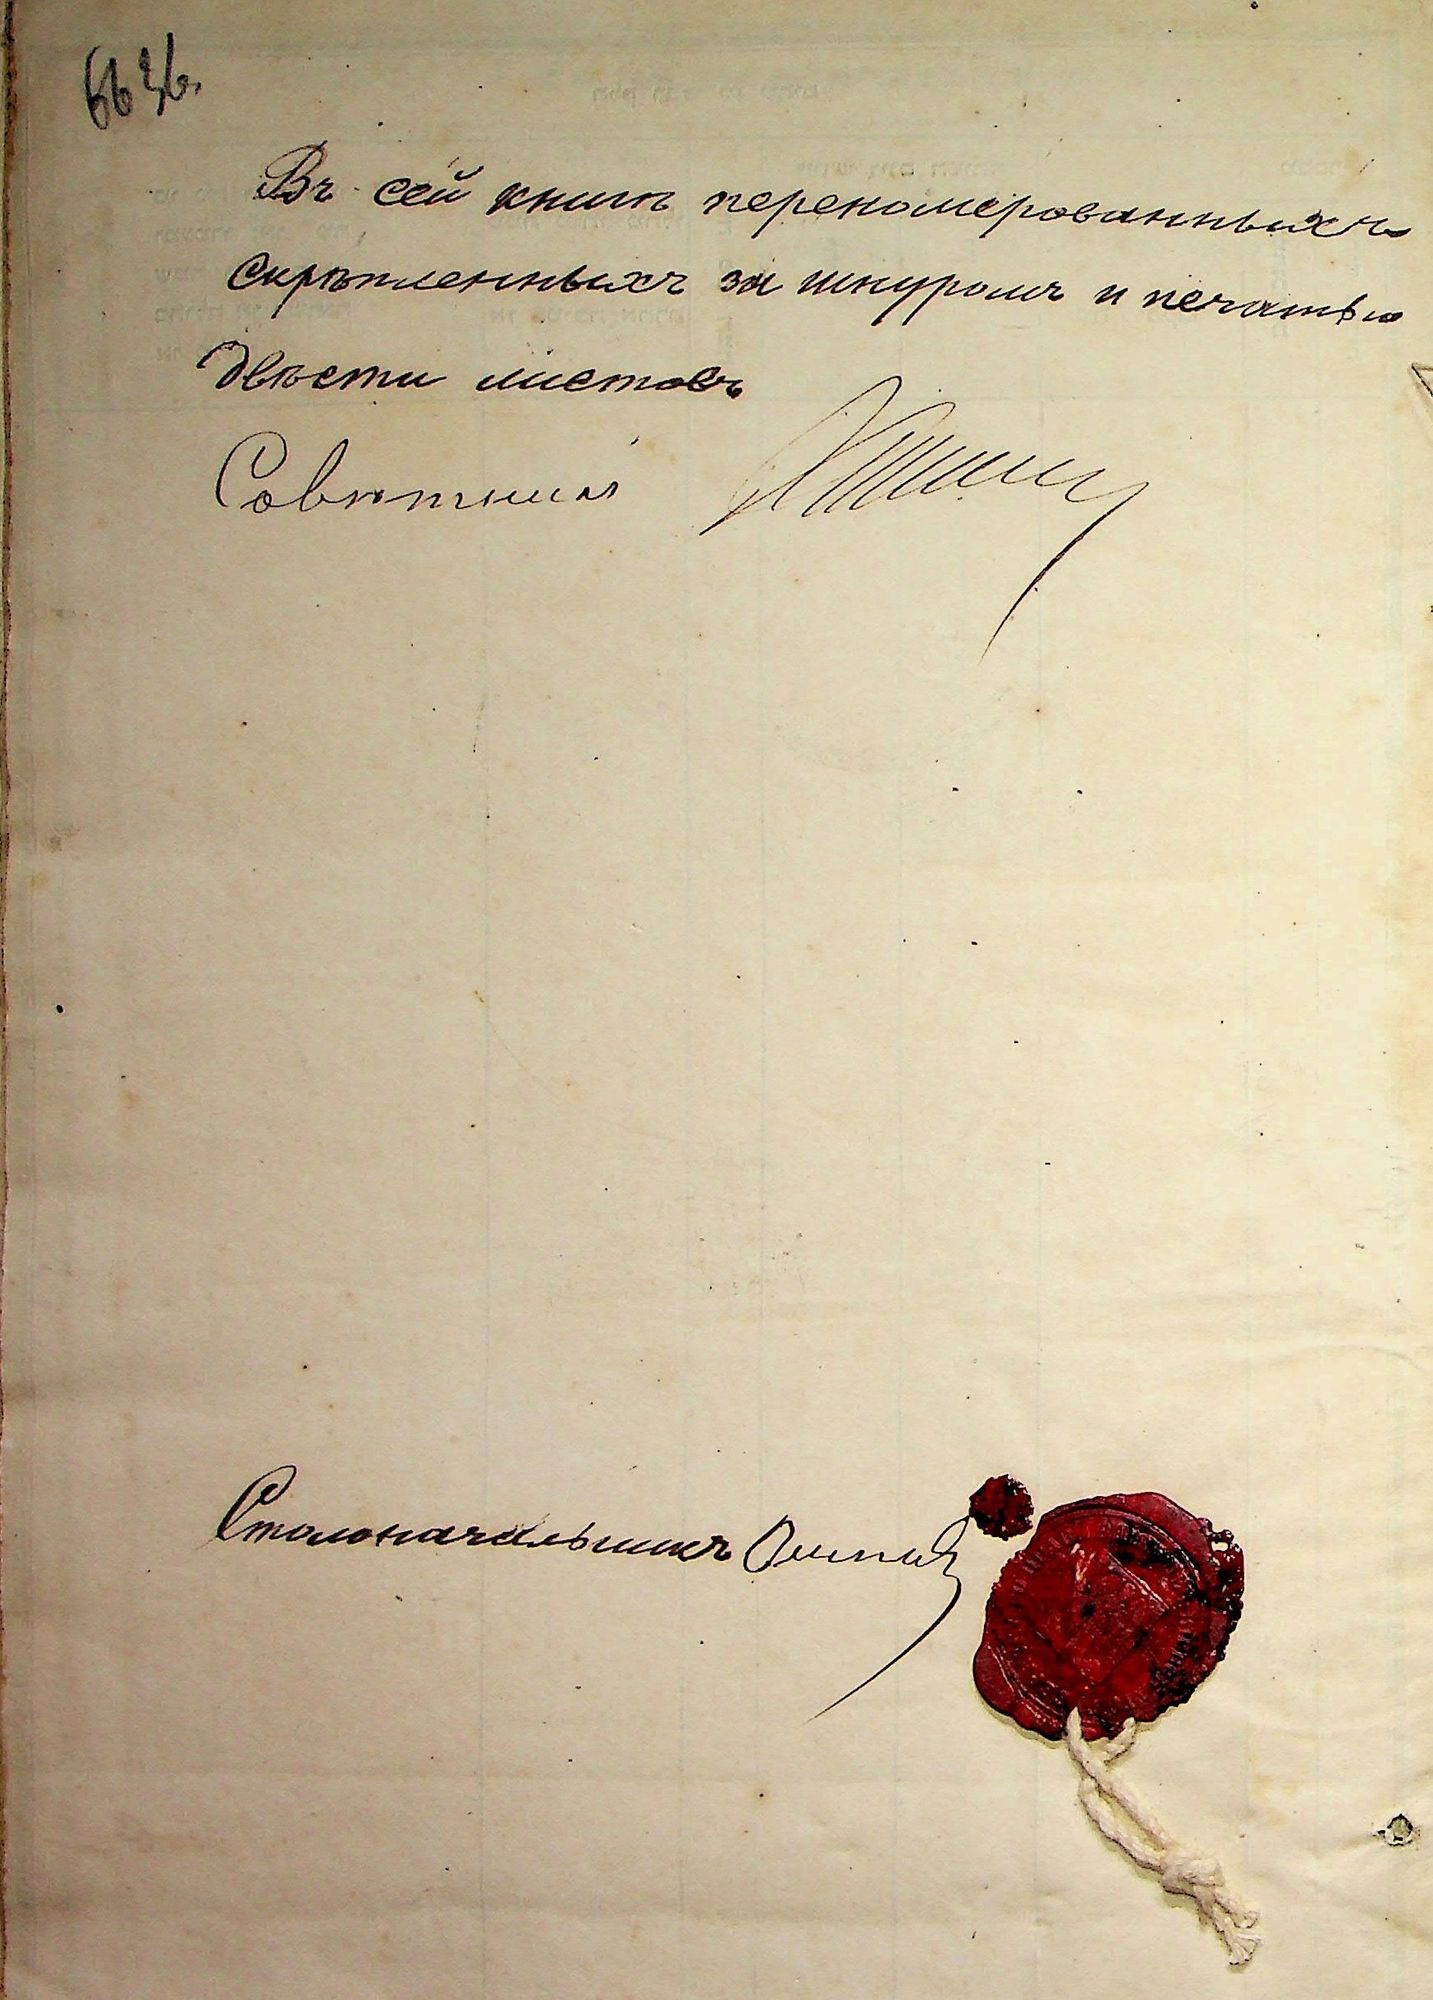 Въ сей книгѣ перенумерованныхъ
скрѣпленныхъ за шнуромъ и печатью
двѣсти листовъ
Совѣтникъ
Столоначальникъ